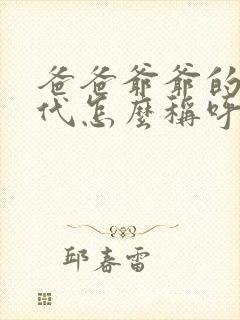 爸爸爺爺的
代怎麼稱呼
邱春雷